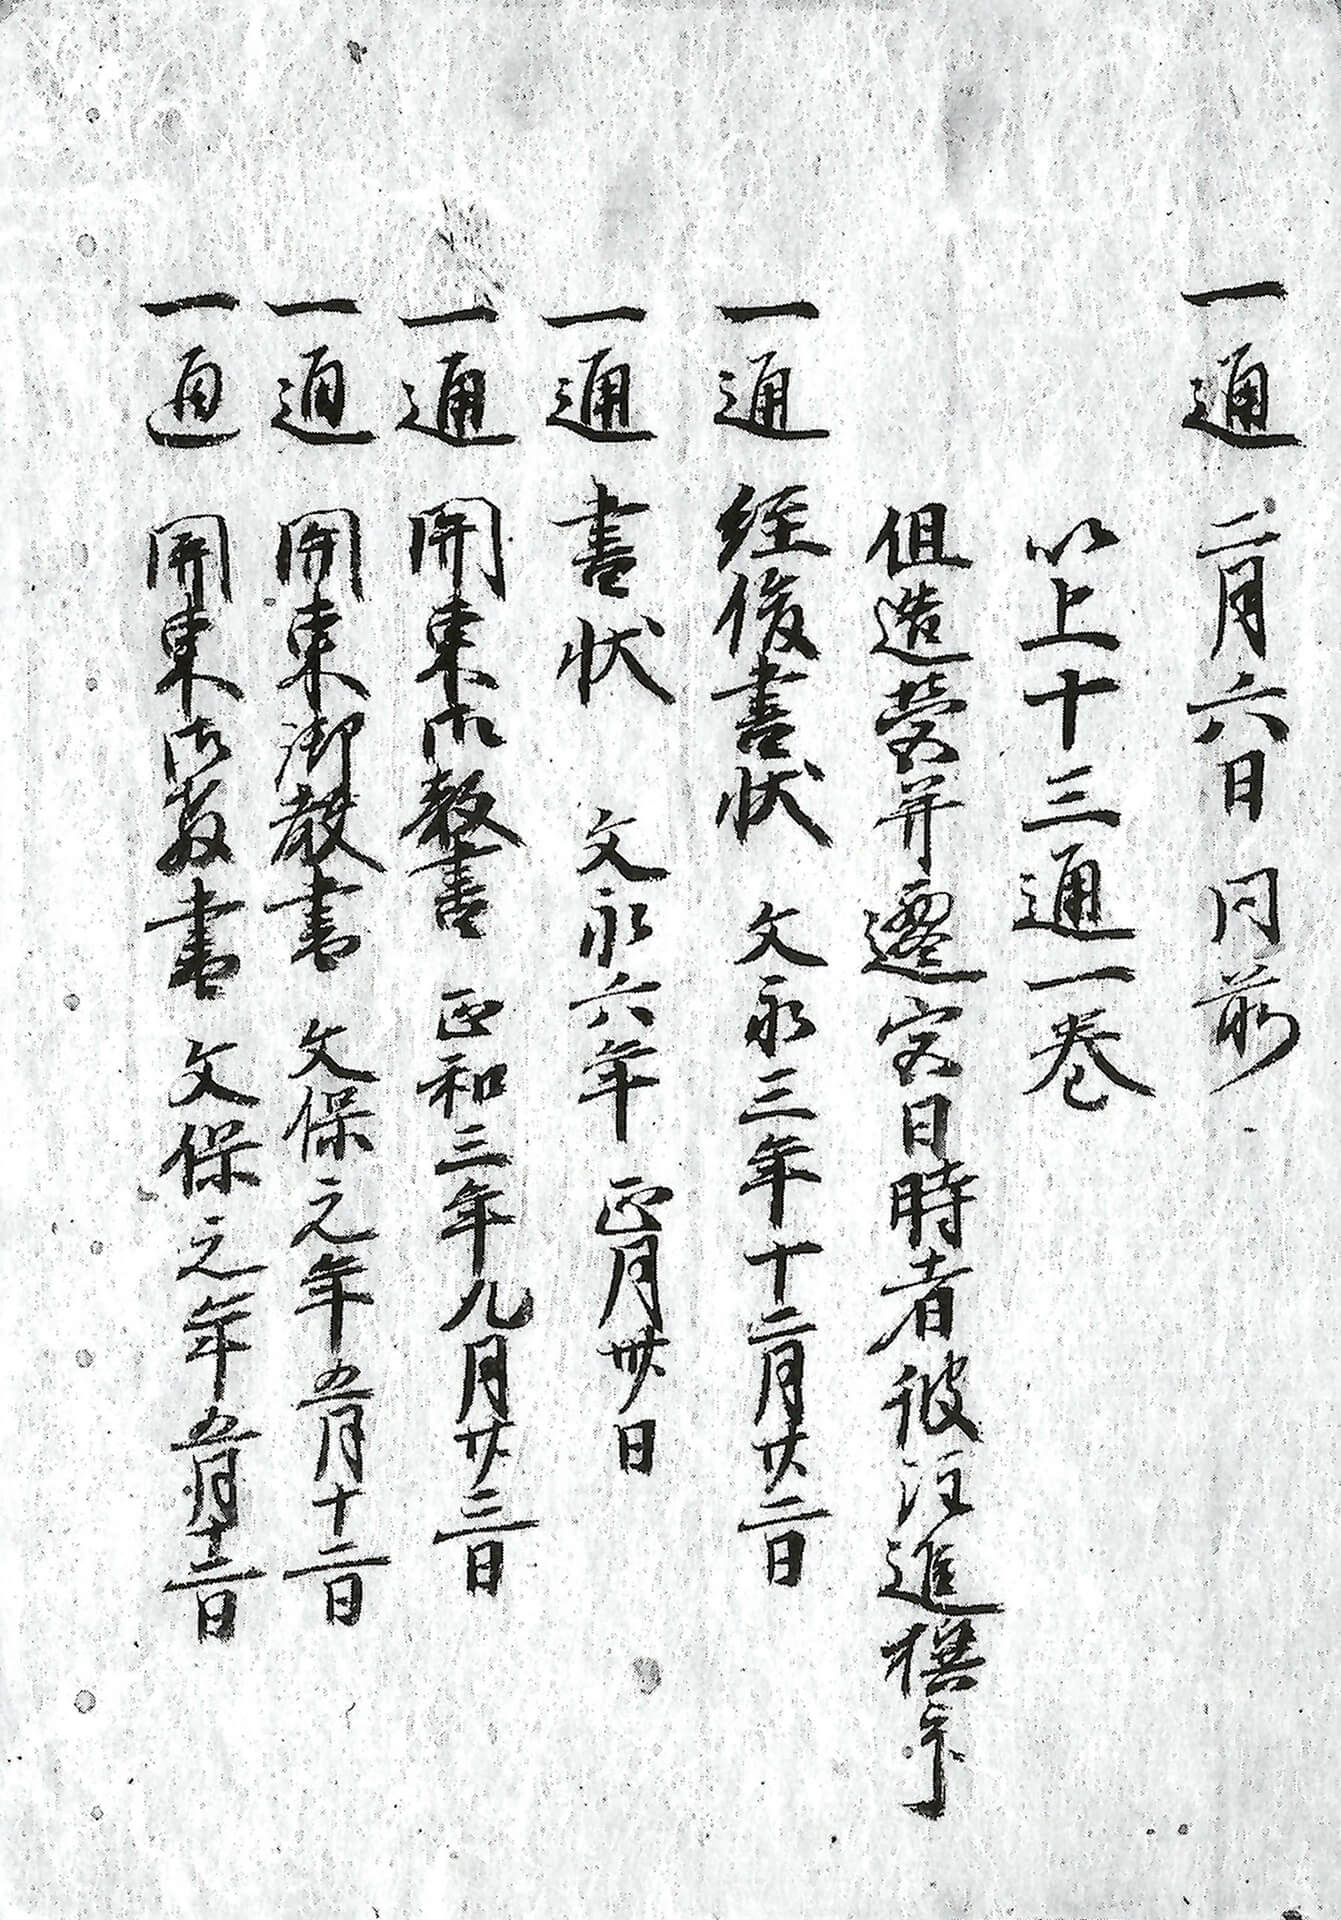 一通 二月六日 同前
以上十三通一巻
但造営并遷宮日時者彼注進撰定
一通 経俊書状 文永三年十二月廿二日
一通 書状 文永六年 正月卅日
一通 関東御教書 正和三年九月廿三日
一通 関東御教書 文保元年五月十二日
一通 関東御教書 文保元年五月十二日